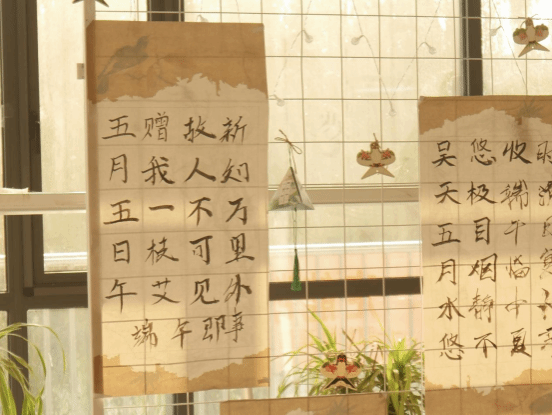 五月五日午
赠我一枝艾
故人不可见
新知万里外
端午即事
吴天五月水悠
悠极目烟静不
收端午临中夏